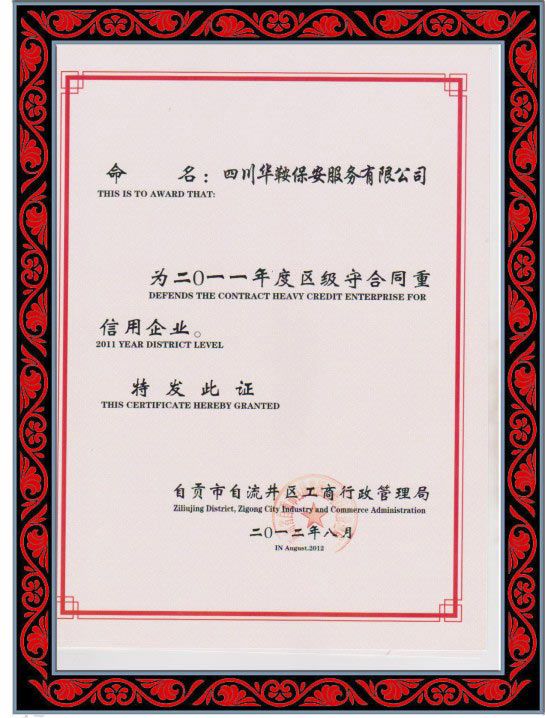 命 名：四川华鞍保安服务有限公司
THIS IS TO AWARD THAT:
为二〇一一年度区级守合同重
DEFENDS THE CONTRACT HEAVY CREDIT ENTERPRISE FOR
信用企业。
2011 YEAR DISTRICT LEVEL
特发此证
THIS CERTIFICATE HEREBY GRANTED
自贡市自流井区工商行政管理局
Ziliujing District, Zigong City Industry and Commerce Administration
二〇一二年八月
IN August.2012